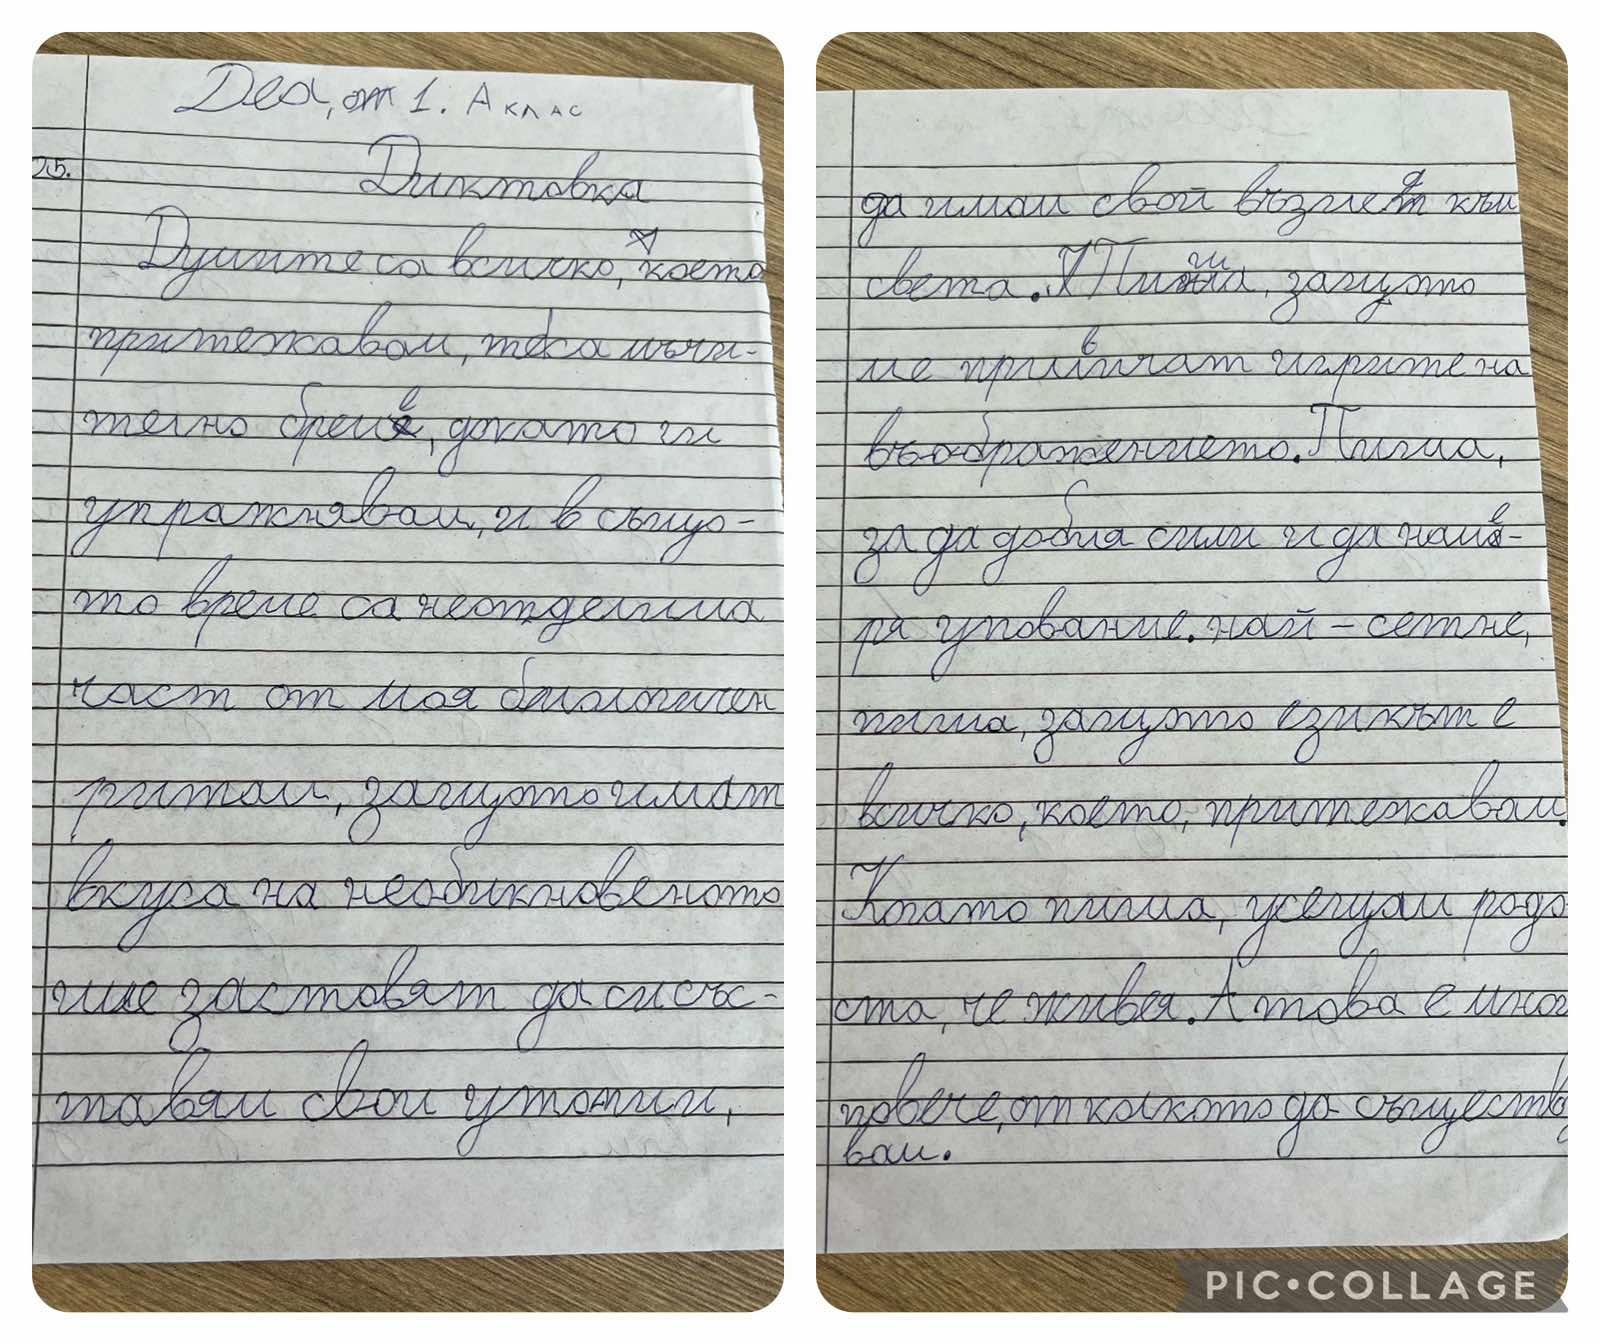 Деа, от 1. А клас
25.
Диктовка
Думите са всичко, което
притежавам, те са мъчи-
телно бреме, докато ги
упражнявам, и в също-
то време са неотделима
част от моя биологичен
ритъм, защото имат
вкуса на необикновеното
и ме заставят да си със-
тавям свои утопии,
да имам свой възглед към
света. Пиша, защото
ме привличат игрите на
въображението. Пиша,
за да добия сили и да наме-
ря упование. най-сетне,
пиша, защото езикът е
всичко, което, притежавам.
Когато пиша, усещам радо
ста, че живея. А това е много
повече, от колкото да съществу
вам.
PIC•COLLAGE